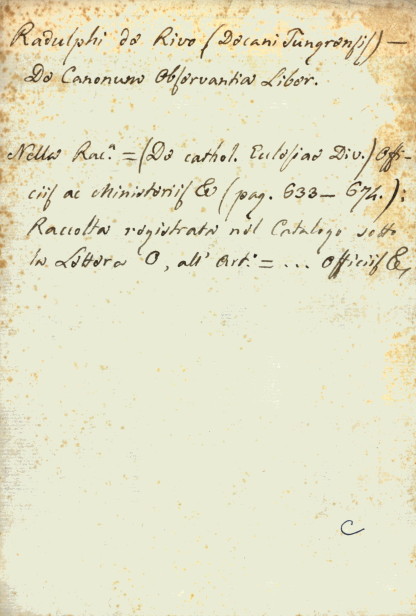 Radulphi de Rivo (Decani Tungrensis) —
De Canonum Observantia Liber.
Nella Rac.ª = (De cathol. Ecclesiae Div.) Offi-
ciis ac Ministeriis & (pag. 633 — 674.):
Raccolta registrata nel Catalogo sotto
la Lettera O, all' Art.º = ... Officiis &,
C